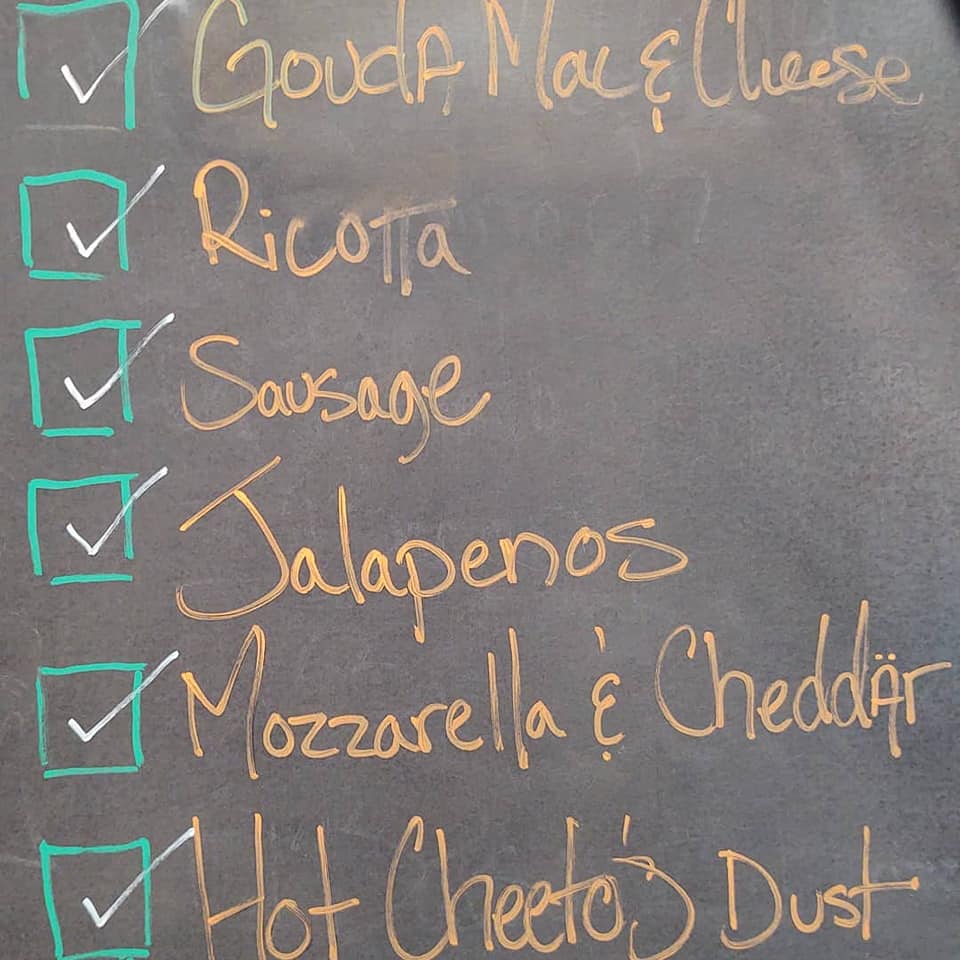 Gouda Mac & Cheese
Ricotta
Sausage
Jalapenos
Mozzarella & Cheddär
Hot Cheeto's Dust